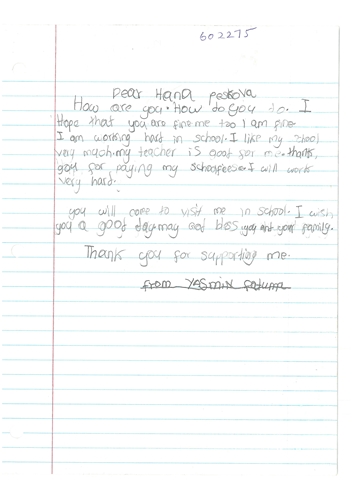 602275
Dear Hana Peskova
How are you. How do you do. I
Hope that you are fine me too I am fine
I am working hard in school. I like my school
very much. my teacher is good for me. thank
you for paying my schoolfees. I will work
very hard.
you will come to visit me in school. I wish
you a good day may god bless you and your family.
Thank you for supporting me.
from Yasmin Fatuma